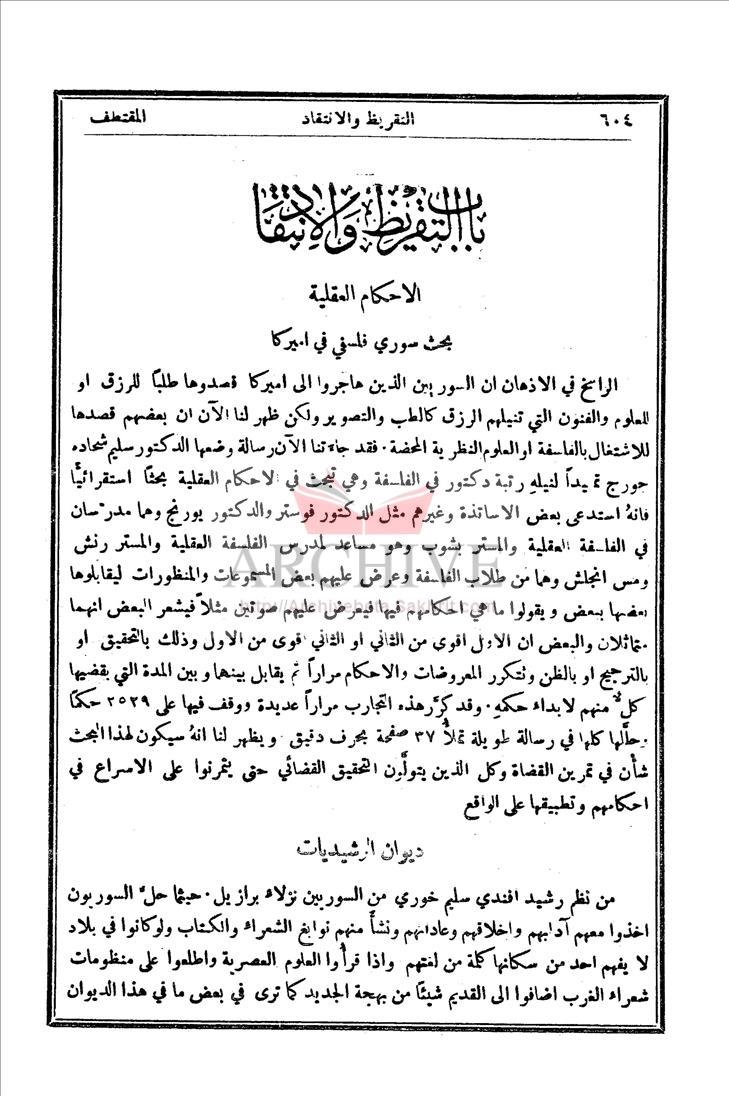 ٦٠٤ التقريظ والانتقاد المقتطف
باب التقريظ والانتقاد
الاحكام العقلية
بحث سوري فلسفي في اميركا
الراسخ في الاذهان ان السوريين الذين هاجروا الى اميركا قصدوها طلبًا للرزق او
للعلوم والفنون التي تنيلهم الرزق كالطب والتصوير ولكن ظهر لنا الآن ان بعضهم قصدها
للاشتغال بالفلسفة او العلوم النظرية المحضة. فقد جاءتنا الآن رسالة وضعها الدكتور سليم شحاده
جورج تمهيداً لنيلهِ رتبة دكتور في الفلسفة وهي تبحث في الاحكام العقلية بحثًا استقرائيًّا
فانهُ استدعى بعض الاساتذة وغيرهم مثل الدكتور فوستر والدكتور يورنج وهما مدرسان
في الفلسفة العقلية والمستر بشوب وهو مساعد لمدرس الفلسفة العقلية والمستر رنش
ومس انجلش وهما من طلاب الفلسفة وعرض عليهم بعض المسموعات والمنظورات ليقابلوها
بعضها ببعض و يقولوا ما هي احكامهم فيها فيعرض عليهم صوتين مثلاً فيشعر البعض انهما
متماثلان والبعض ان الاول اقوى من الثاني او الثاني اقوى من الاول وذلك بالتحقيق او
بالترجيح او بالظن وتتكرر المعروضات والاحكام مراراً ثم يقابل بينها و بين المدة التي يقضيها
كلٌّ منهم لابداء حكمهِ. وقد كرَّر هذه التجارب مراراً عديدة ووقف فيها على ٣٥٢٩ حكمًا
وحلَّلها كلها في رسالة طويلة تملأُ ٣٧ صفحة بحرف دقيق و يظهر لنا انهُ سيكون لهذا البحث
شأن في تمرين القضاة وكل الذين يتولَّون التحقيق القضائي حتى يتمرنوا على الاسراع في
احكامهم وتطبيقها على الواقع
ديوان الرشيديات
من نظم رشيد افندي سليم خوري من السوريين نزلاء برازيل. حيثما حلَّ السوريون
اخذوا معهم آدابهم واخلاقهم وعاداتهم ونشأ منهم نوابغ الشعراء والكتاب ولو كانوا في بلاد
لا يفهم احد من سكانها كلمة من لغتهم واذا قرأوا العلوم العصرية واطلعوا على منظومات
شعراء الغرب اضافوا الى القديم شيئًا من بهجة الجديد كما ترى في بعض ما في هذا الديوان
ARCHIVE
http://Archivebeta.Sakhrit.com